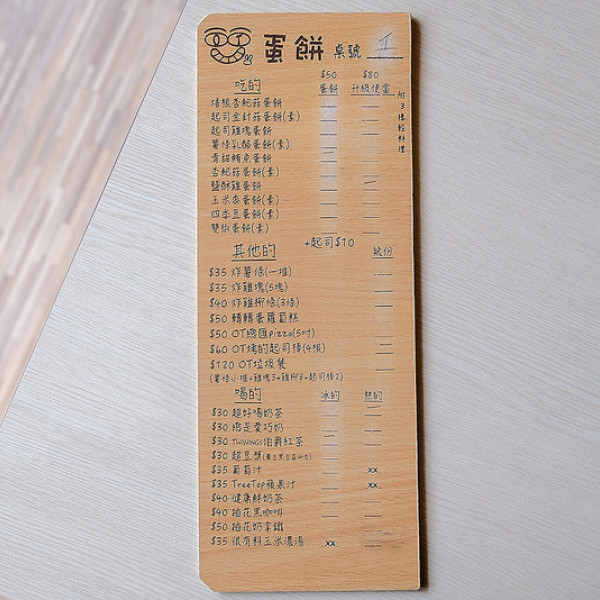 蛋餅 桌號
$50 $80
吃的 蛋餅 升級便當
附3樣輕料理
培根杏鮑菇蛋餅
起司金針菇蛋餅(素)
起司雞塊蛋餅
薯條乳酪蛋餅(素)
青甜鮪魚蛋餅
杏鮑菇蛋餅(素)
鹽酥雞蛋餅
玉米蛋餅(素)
四季豆蛋餅(素)
雙椒蛋餅(素)
+起司$10
其他的 份
$35 炸薯條(一堆)
$35 炸雞塊(5塊)
$40 炸雞柳條(3條)
$50 轉轉蛋蘿蔔糕
$50 OT總匯pizza(5吋)
$60 OT燒的起司棒(4根)
$120 OT垃圾餐
(薯條小堆+雞塊3+雞柳3+起司棒2)
喝的 冰的 熱的
$30 超好喝奶茶
$30 總是賣巧奶
$30 TWININGS伯爵紅茶
$30 超豆漿
$35 葡萄汁 xx
$35 TreeTop蘋果汁 xx
$40 健康鮮奶茶
$40 拉花黑咖啡
$50 拉花奶拿鐵
$35 很有料玉米濃湯 xx